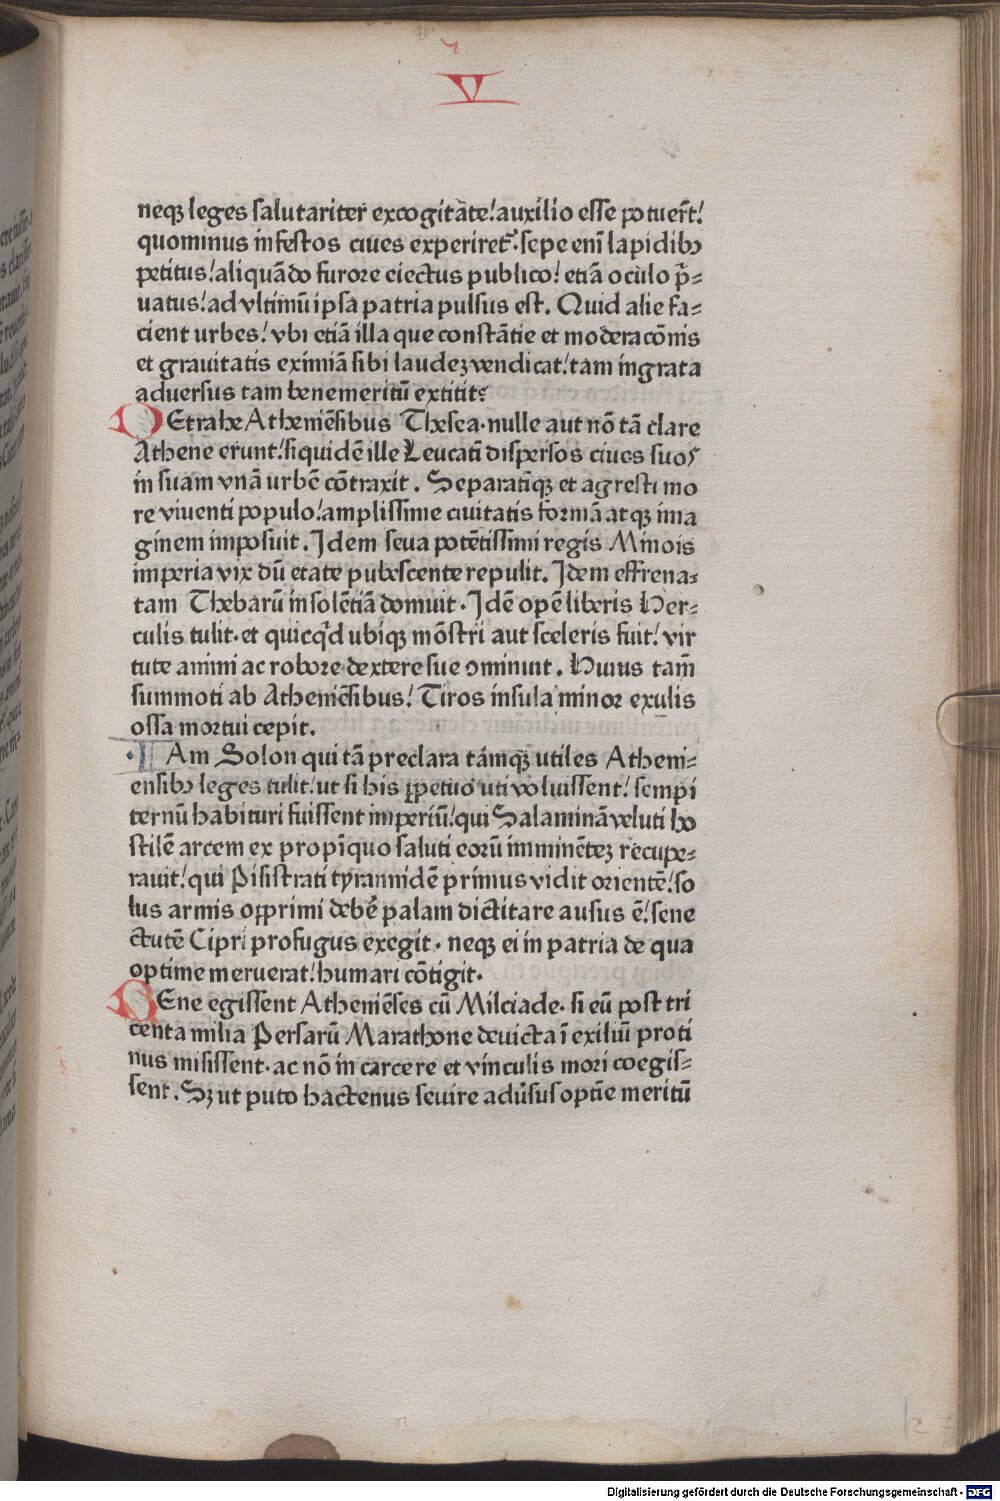 V
neqꝫ leges salutariter excogitāte! auxilio esse potuer̄t!
quominus infestos ciues experiret᷑. sepe enī lapidibꝫ
petitus! aliquādo furore eiectus publico! etiā oculo p̄-
uatus! ad vltimū ipsa patria pulsus est. Quid alie fa-
cient urbes! vbi etiā illa que constātie et moderacōnis
et grauitatis eximiā sibi laudeꝫ vendicat! tam ingrata
aduersus tam benemeritū extitit?
DEtrahe Atheniēsibus Thesea. nulle aut nō tā clare
Athene erunt! siquidē ille Leucatī dispersos ciues suos
in suam vnā urbē cōtraxit. Separatīqꝫ et agresti mo
re viuenti populo! amplissime ciuitatis formā atqꝫ ima
ginem imposuit. Idem seua potētissimi regis Minois
imperia vix dū etate pubescente repulit. Idem effrena-
tam Thebarū insolētiā domuit. Idē opē liberis Her-
culis tulit. et quicq̄d ubiqꝫ mōstri aut sceleris fuit! vir
tute animi ac robore dextere sue ꝯminuit. Huius tam̄
summoti ab Atheniēsibus! Tiros insula minor exulis
ossa mortui cepit.
IAm Solon qui tā preclara tamqꝫ utiles Atheni-
ensibꝫ leges tulit! ut si his ꝑpetuo uti voluissent! sempi
ternū habituri fuissent imperiū! qui Salaminā veluti ho
stilē arcem ex propīquo saluti eorū imminēteꝫ recupe-
rauit! qui Pisistrati tyrannidē primus vidit orientē! so
lus armis opprimi deb̄e palam dictitare ausus ē! sene
ctutē Cipri profugus exegit. neqꝫ ei in patria de qua
optime meruerat! humari cōtigit.
BEne egissent Atheniēses cū Milciade. si eū post tri
centa milia Persarū Marathone deuicta ī exiliū proti
nus misissent. ac nō in carcere et vinculis mori coegis-
sent. Sꝫ ut puto hactenus seuire adūsus optīe meritū
k
Digitalisierung gefördert durch die Deutsche Forschungsgemeinschaft - DFG